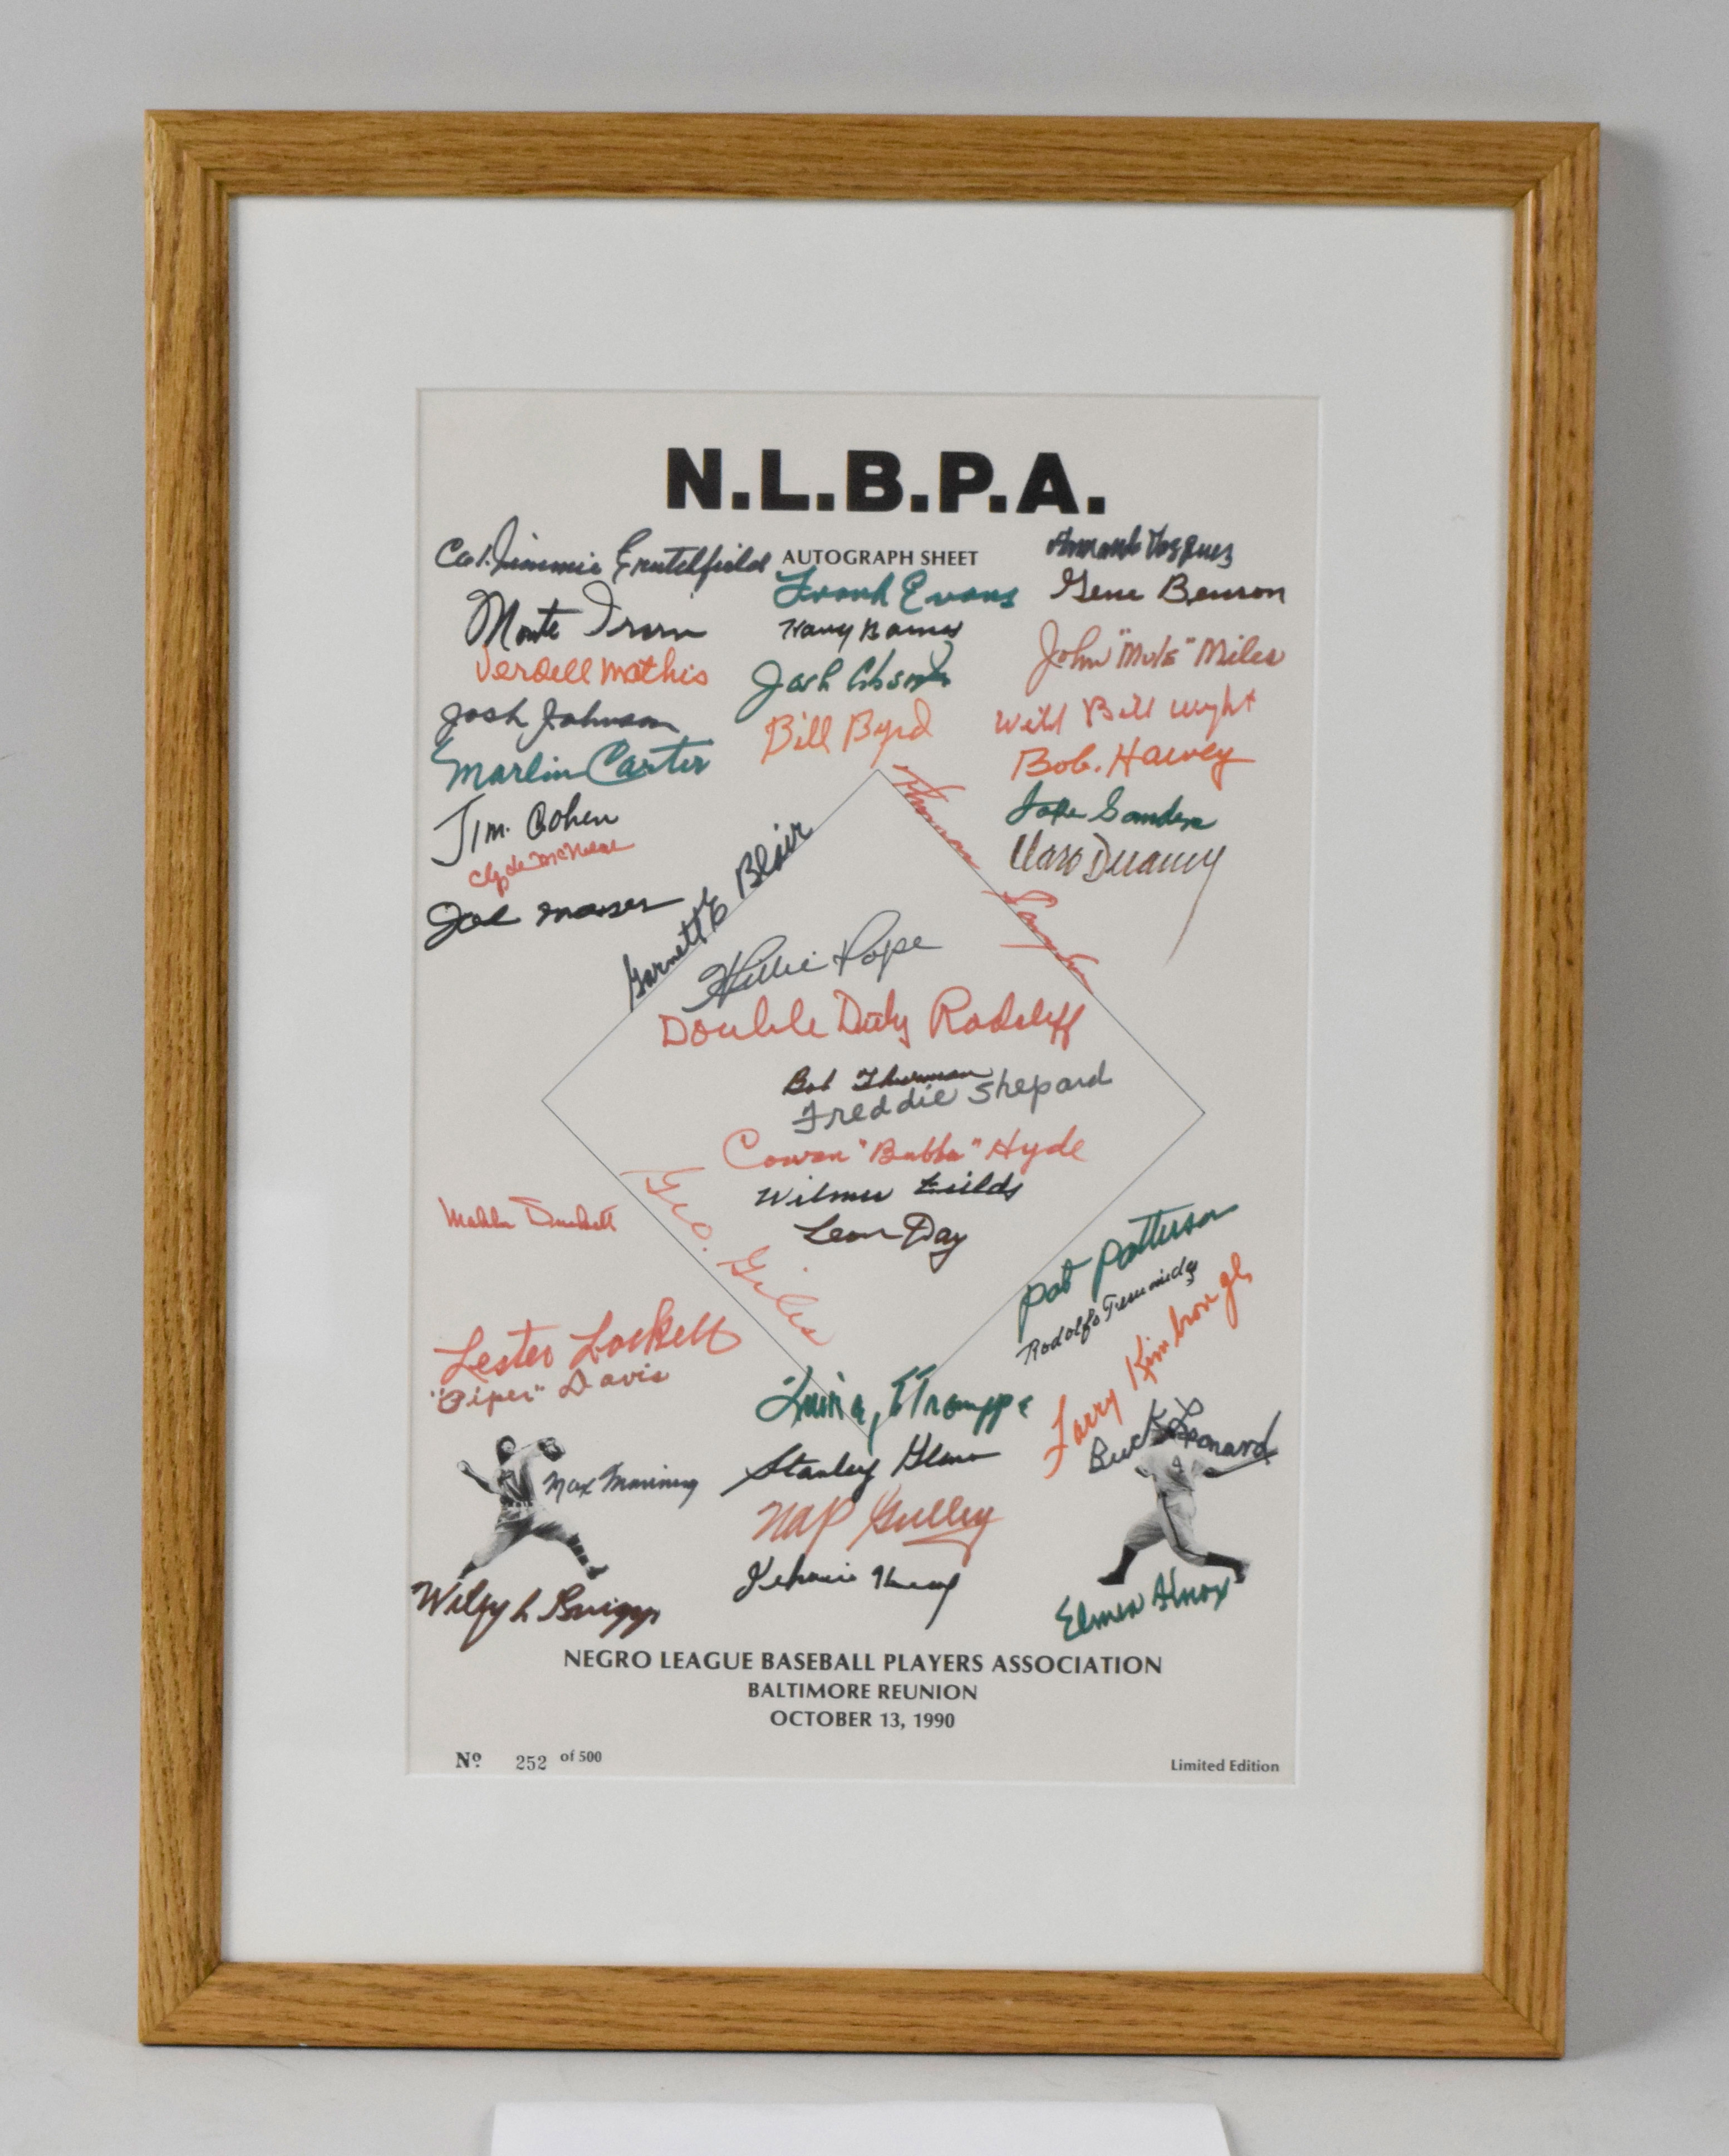 N.L.B.P.A.
AUTOGRAPH SHEET
Jimmie Crutchfield
Monte Irvin
Verdell Mathis
Josh Johnson
Marlin Carter
Jim Cohen
Clyde McNeal
Joe
Frank Evans
Harry Barnes
Josh Gibson Jr
Bill Byrd
Armando Vazquez
Gene Benson
John "Mule" Miles
Wild Bill Wright
Bob. Harvey
Jake Sanders
Garnett E Blair
Thomas
Willie Pope
Double Duty Radcliff
Bob Thurman
Freddie Shepard
Cowan "Bubba" Hyde
Wilmer Fields
Leon Day
Geo. Giles
Mahlon Duckett
Lester Lockett
"Piper" Davis
Pat Patterson
Rodolfo Fernandez
Larry Kimbrough
Buck Leonard
Max Manning
Stanley Glenn
Nap Gulley
Wiley L Griggs
Elmer Knox
NEGRO LEAGUE BASEBALL PLAYERS ASSOCIATION
BALTIMORE REUNION
OCTOBER 13, 1990
Nº 252 of 500
Limited Edition